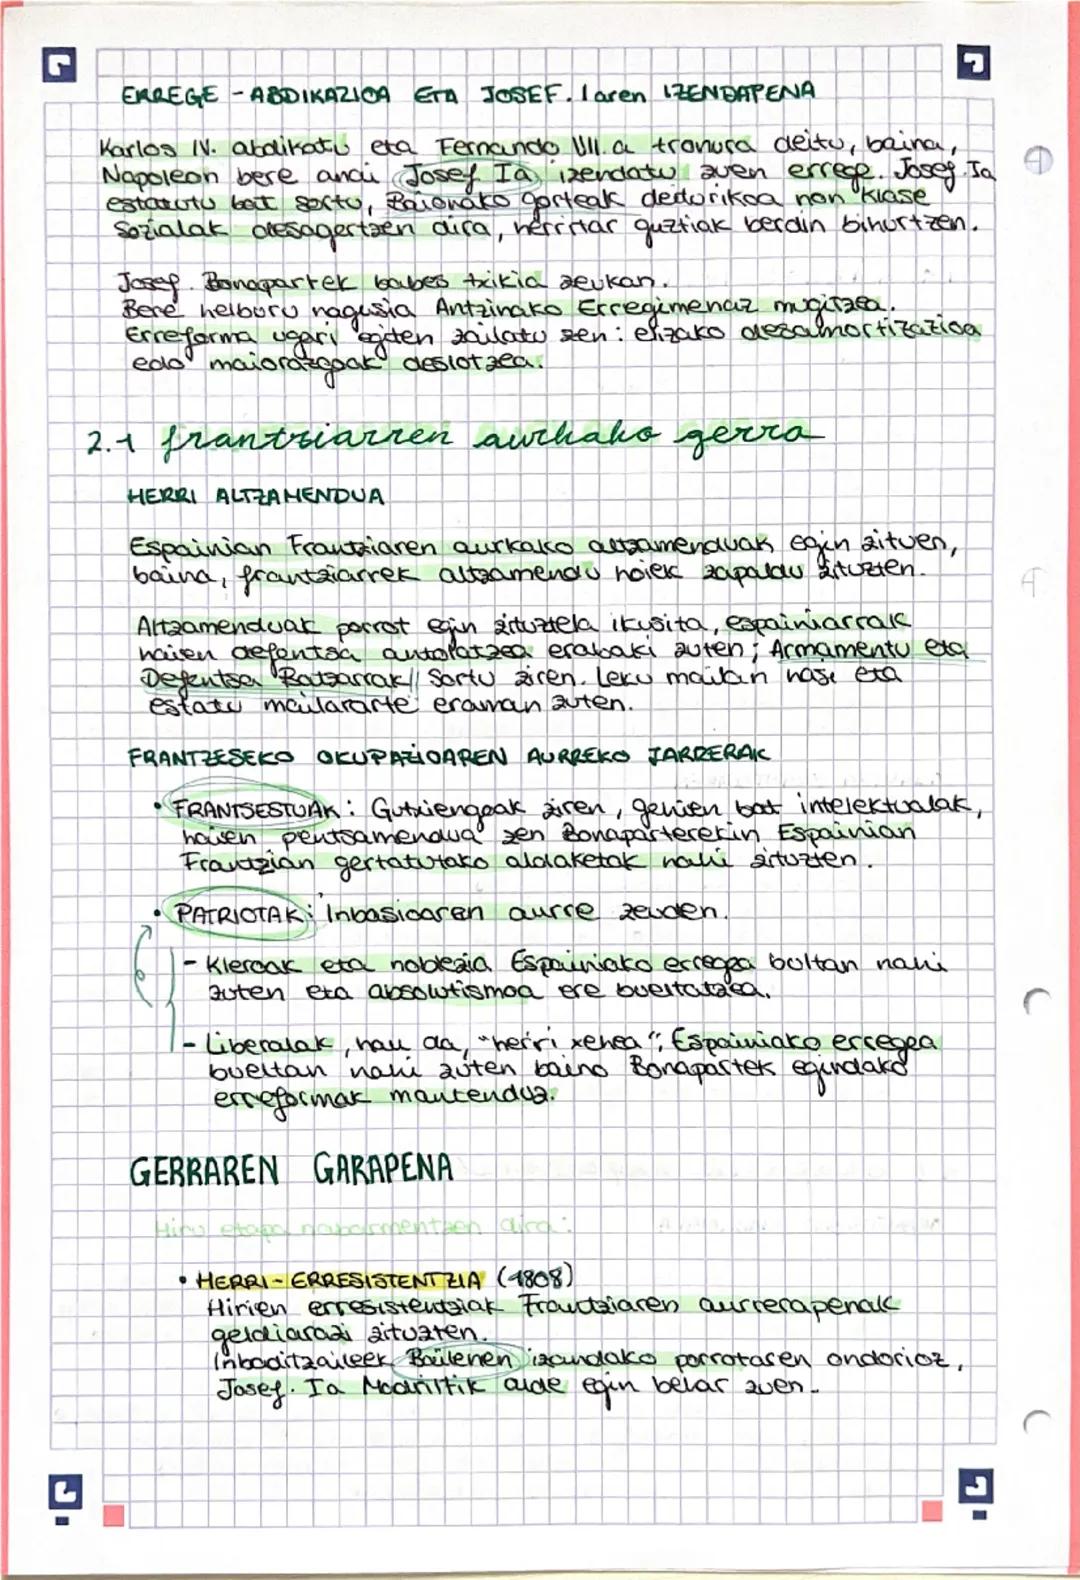 ERREGE - ABDIKAZIOA ETA JOSEF. Iaren IZENDAPENA
Karlos IV. abdikatu eta Fernando VII.a tronura deitu, baina,
Napoleon bere anai Josef. Ia izendatu zuen errege. Josef. Ia
estatutu bat sortu, Baionako gorteak deiturikoa non klase
sozialak desagertzen dira, herritar guztiak berdin bihurtzen.
Josef. Bonapartek babes txikia zeukan.
Bere helburu nagusia Antzinako Erregimenaz mugitzea.
Erreforma ugari egiten zailatu zen: elizako desamortizazioa
edo maiorazgoak deslotzea.
2.1 frantziarren aurkako gerra
HERRI ALTZAMENDUA
Espainian Frantziaren aurkako altzamenduak egin zituen,
baina, frantziarrek altzamendu hoiek zapaldu zituzten.
Altzamenduak porrot egin zituztela ikusita, espainiarrak
haien defentsa antolatzea erabaki zuten; Armamentu eta
Defentsa Batzarrak|| Sortu ziren. Leku mailan hasi eta
estatu mailararte eraman zuten.
FRANTZESEKO OKUPAZIOAREN AURREKO JARRERAK
• FRANTSESTUAK: Gutxiengoak ziren, gehien bat intelektualak,
haien pentsamendua zen Bonaparterekin Espainian
Frantzian gertatutako aldaketak nahi zituzten.
• PATRIOTAK: Inbasioaren aurre zeuden.
- Kleroak eta noblezia Espainiako erregea bultan nahi
zuten eta absolutismoa ere bueltatzea.
- Liberalak, hau da, "herri xehea", Espainiako erregea
bueltan nahi zuten baino Bonapartek egindako
erreformak mantenduz.
GERRAREN GARAPENA
Hiru etapa nabarmentzen dira:
• HERRI - ERRESISTENTZIA (1808)
Hirien erresistentziak Frantziaren aurrerapenak
geldiarazi zituzten.
Inbaditzaileek Bailenen izandako porrotaren ondorioz,
Josef. Ia Madriltik alde egin behar zuen.